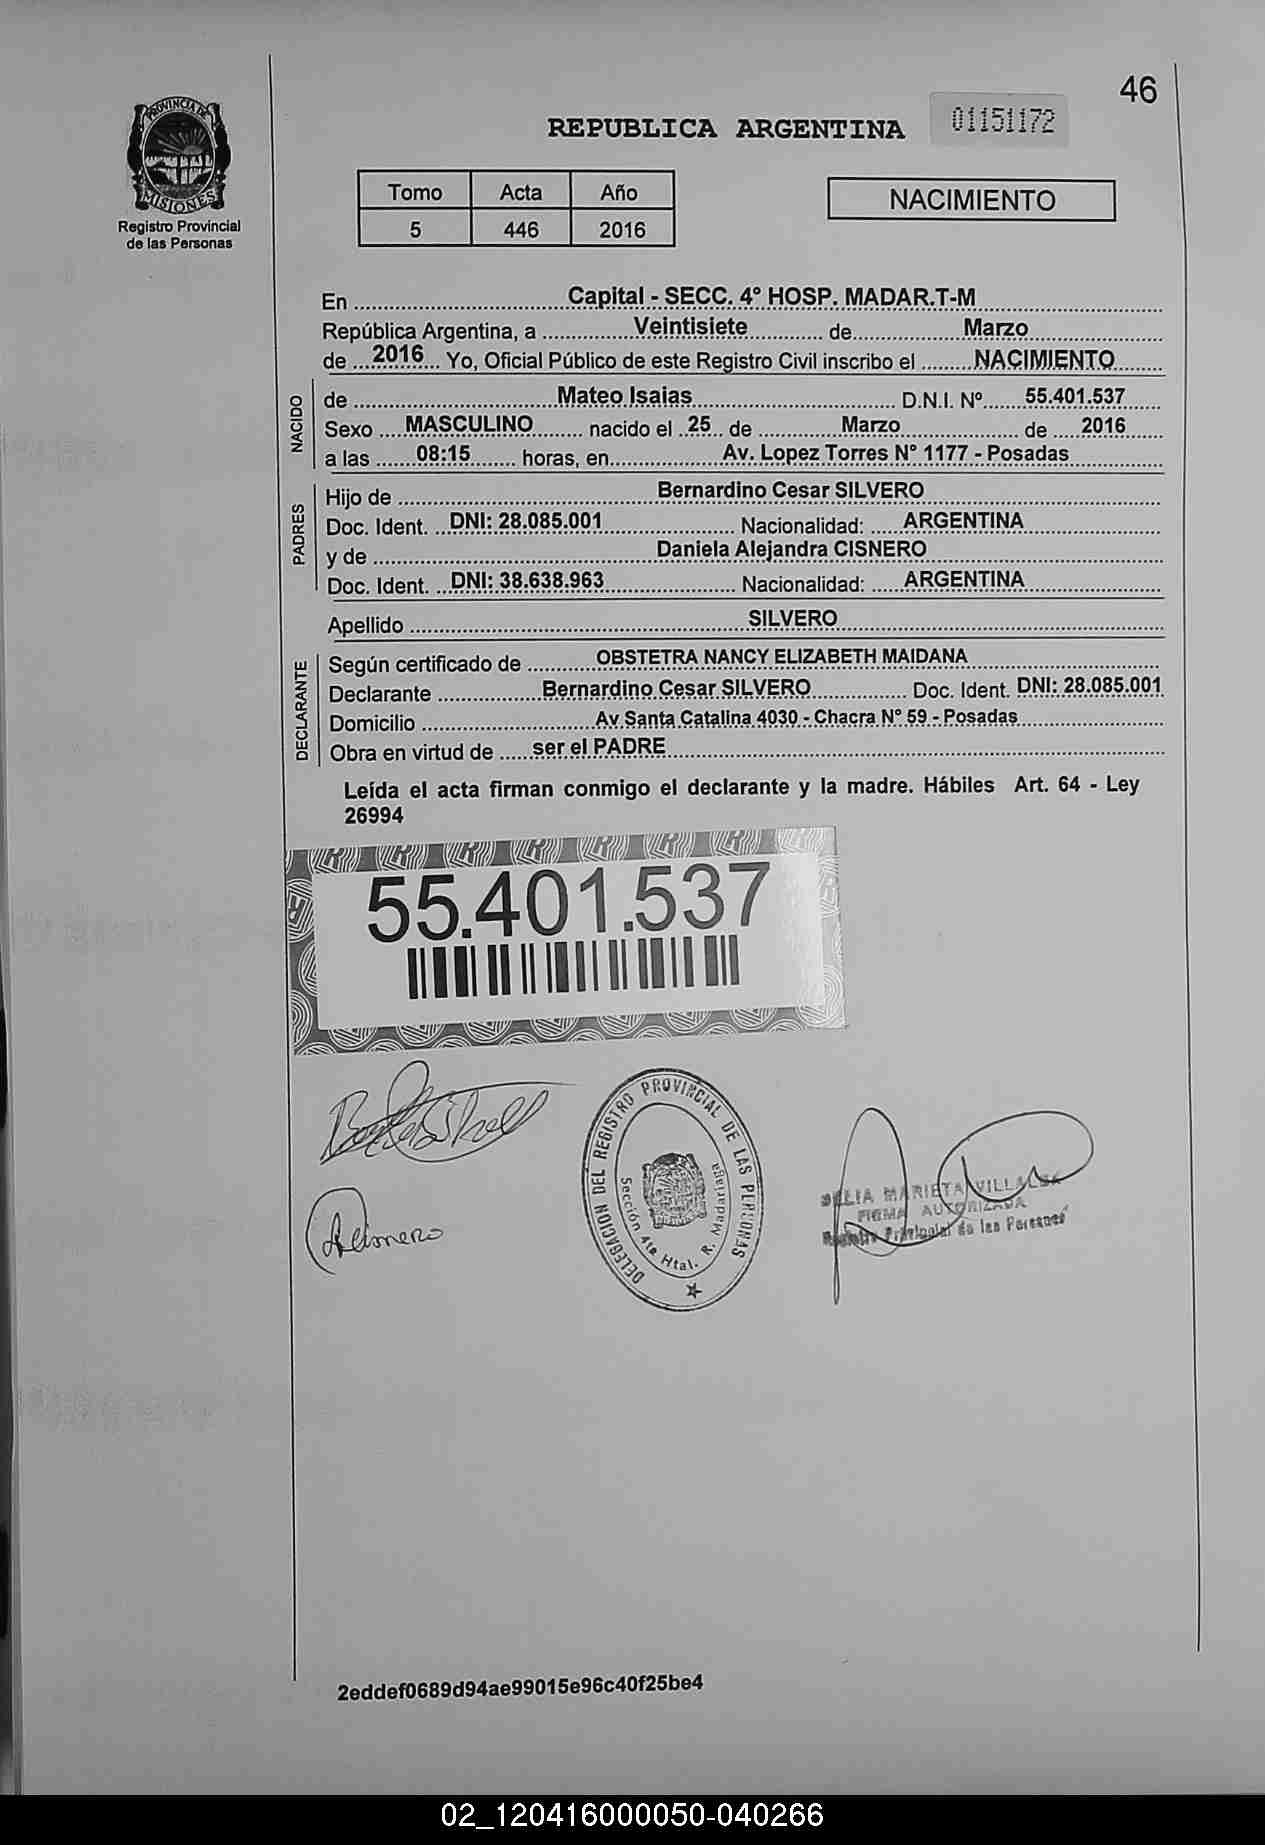 46
PROVINCIA DE
MISIONES
Registro Provincial
de las Personas
REPUBLICA ARGENTINA
01151172
Tomo Acta Año
5 446 2016
NACIMIENTO
En Capital - SECC. 4° HOSP. MADAR.T-M
República Argentina, a Veintisiete de Marzo
de 2016 Yo, Oficial Público de este Registro Civil inscribo el NACIMIENTO
NACIDO
de Mateo Isaias D.N.I. N° 55.401.537
Sexo MASCULINO nacido el 25 de Marzo de 2016
a las 08:15 horas, en Av. Lopez Torres N° 1177 - Posadas
PADRES
Hijo de Bernardino Cesar SILVERO
Doc. Ident. DNI: 28.085.001 Nacionalidad: ARGENTINA
y de Daniela Alejandra CISNERO
Doc. Ident. DNI: 38.638.963 Nacionalidad: ARGENTINA
Apellido SILVERO
DECLARANTE
Según certificado de OBSTETRA NANCY ELIZABETH MAIDANA
Declarante Bernardino Cesar SILVERO Doc. Ident. DNI: 28.085.001
Domicilio Av Santa Catalina 4030 - Chacra N° 59 - Posadas
Obra en virtud de ser el PADRE
Leída el acta firman conmigo el declarante y la madre. Hábiles Art. 64 - Ley
26994
55.401.537
DELEGACION DEL REGISTRO PROVINCIAL DE LAS PERSONAS
Sección 4ta Htal. R. Madariaga
MARIETA VILLALBA
FIRMA AUTORIZADA
Registro Provincial de las Personas
2eddef0689d94ae99015e96c40f25be4
02_120416000050-040266